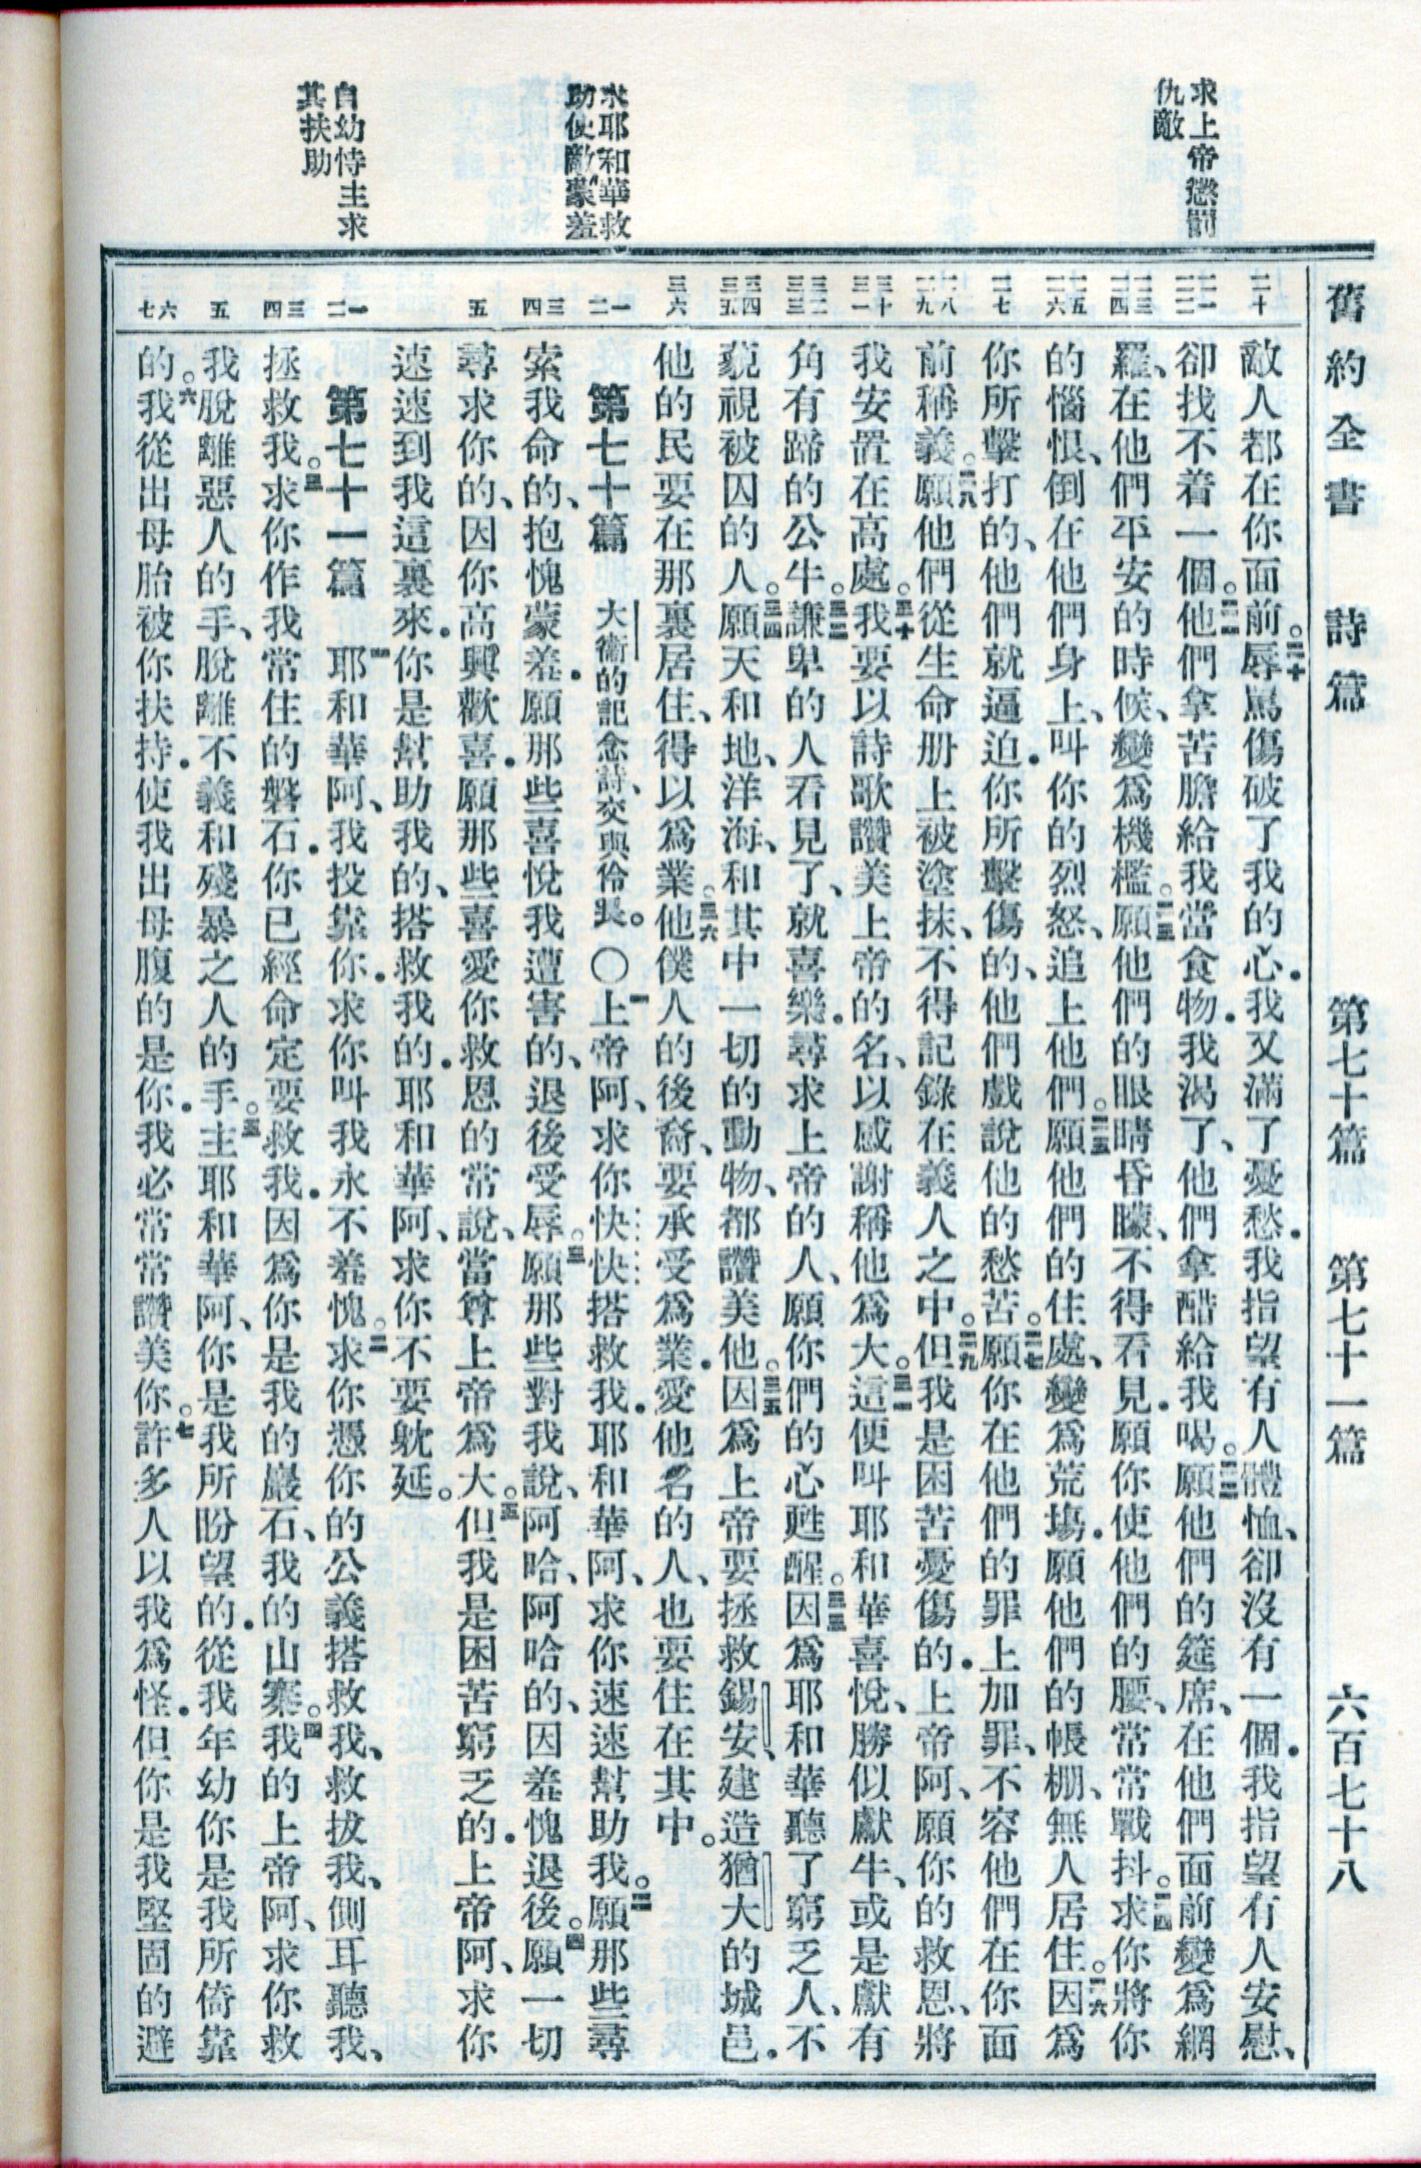 舊約全書 詩篇 第七十篇 第七十一篇 六百七十八
求上帝懲罰
仇敵
求耶和華救
助使敵蒙羞
自幼恃主求
其扶助
二十
二一
二二
二三
二四
二五
二六
二七
二八
二九
三十
三一
三二
三三
三四
三五
三六
一
二
三
四
五
一
二
三
四
五
六
七
敵人都在你面前。二十辱罵傷破了我的心．我又滿了憂愁．我指望有人體恤、卻沒有一個．我指望有人安慰、
卻找不着一個。二一他們拿苦膽給我當食物．我渴了、他們拿醋給我喝。二二願他們的筵席、在他們面前變爲網
羅、在他們平安的時候、變爲機檻。二三願他們的眼睛昏矇、不得看見．願你使他們的腰、常常戰抖。二四求你將你
的惱恨、倒在他們身上、叫你的烈怒、追上他們。二五願他們的住處、變爲荒塲．願他們的帳棚、無人居住。二六因爲
你所擊打的、他們就逼迫．你所擊傷的、他們戲說他的愁苦。二七願你在他們的罪上加罪、不容他們在你面
前稱義。二八願他們從生命册上被塗抹、不得記錄在義人之中。二九但我是困苦憂傷的．上帝阿、願你的救恩、將
我安置在高處。三十我要以詩歌讚美上帝的名、以感謝稱他爲大。三一這便叫耶和華喜悅、勝似獻牛、或是獻有
角有蹄的公牛。三二謙卑的人看見了、就喜樂．尋求上帝的人、願你們的心甦醒。三三因爲耶和華聽了窮乏人、不
藐視被囚的人。三四願天和地、洋海、和其中一切的動物、都讚美他。三五因爲上帝要拯救錫安、建造猶大的城邑．
他的民要在那裏居住、得以爲業。三六他僕人的後裔、要承受爲業．愛他名的人、也要住在其中。
第七十篇 大衞的記念詩、交與伶長。〇一上帝阿、求你快快搭救我．耶和華阿、求你速速幫助我。二願那些尋
索我命的、抱愧蒙羞．願那些喜悅我遭害的、退後受辱。三願那些對我說、阿哈、阿哈的、因羞愧退後。四願一切
尋求你的、因你高興歡喜．願那些喜愛你救恩的常說、當尊上帝爲大。五但我是困苦窮乏的．上帝阿、求你
速速到我這裏來．你是幫助我的、搭救我的．耶和華阿、求你不要躭延。
第七十一篇 一耶和華阿、我投靠你．求你叫我永不羞愧。二求你憑你的公義搭救我、救拔我、側耳聽我、
拯救我。三求你作我常住的磐石．你已經命定要救我．因爲你是我的巖石、我的山寨。四我的上帝阿、求你救
我脫離惡人的手、脫離不義和殘暴之人的手。五主耶和華阿、你是我所盼望的．從我年幼你是我所倚靠
的。六我從出母胎被你扶持．使我出母腹的是你．我必常常讚美你。七許多人以我爲怪．但你是我堅固的避